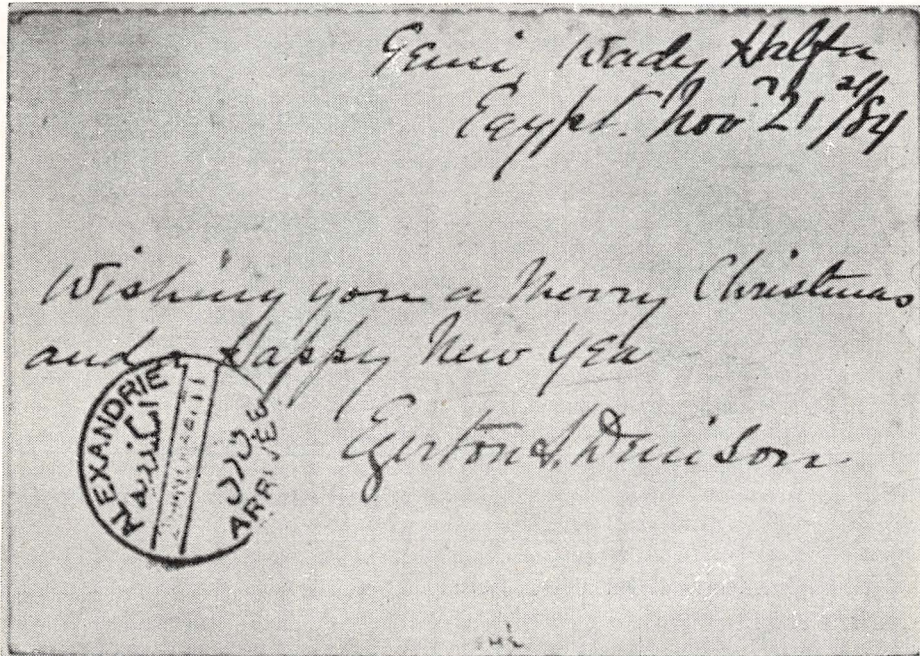 Gemi, Wady Halfa
Egypt. Nov 21st/84
Wishing you a Merry Christmas
and a Happy New Yea
Egerton Denison
ALEXANDRIE
ARRIVEE